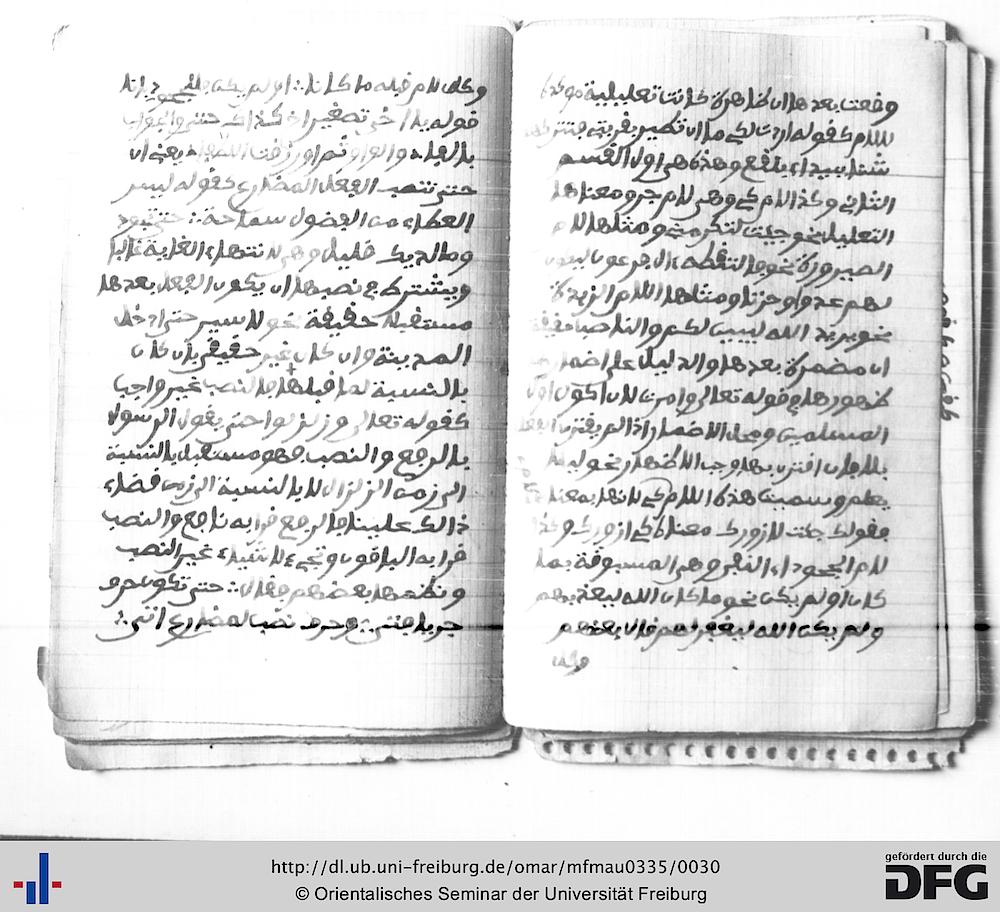 وقعت بعدها ان ظاهرة كانت تعليلية مؤكدة
للام كقوله اردت لكي ما ان تطير بقربتي فتتركها
شنا ببيداء بلقع وهذه هي اول القسم
الثاني وكذا لام كي وهي لام جر ومعناها
التعليل نحو جئت لتكرمني ومثلها لام
الصيرورة نحو فالتقطه ءال فرعون ليكون
لهم عدوا وحزنا ومثلها اللام الزيدة
نحو يريد الله ليبين لكم والناصب حقيقة
ان مضمرة بعدها والدليل على اضمارها
ظهورها في قوله تعالى وامرت لان اكون اول
المسلمين ومحل الاضمار اذا لم يقترن الفعل
بلا فان اقترن بها وجب الاظهار نحو ليلا
يعلم وسميت هذه اللام كي لانها بمعناها
فقولك جئت لازورك معناه كي ازورك وكذا
لام الجحود اي النفي وهي المسبوقة بما
كان او لم يكن نحو ما كان الله ليعذبهم
ولم يكن الله ليغفر لهم قال بعضهم
وكل
وكل لام قبله ما كانا او لم يكن فللجحود بانا
قوله يا اخي تصغير اخ كذاك حتى والجواب
بالفاء والواو ثم او رزقت اللطفا يعني ان
حتى تنصب الفعل المضارع كقوله ليس
العطاء من الفضول سماحة حتى تجود
وما لديك قليل وهي لانتهاء الغاية غالبا
ويشترط في نصبها ان يكون الفعل بعدها
مستقبلا حقيقة نحو لاسير حتى ادخل
المدينة وان كان غير حقيقي بان كان
بالنسبة لما قبلها فالنصب غير واجب
كقوله تعالى وزلزلوا حتى يقول الرسول
بالرفع والنصب فهو مستقبل بالنسبة
الى زمن الزلزال لا بالنسبة الى زمن قضاء
ذالك علينا فالرفع قرا به نافع والنصب
قرا به الباقون وتجيء لاشياء غير النصب
ونظمها بعضهم فقال حتى تكون حرف
جر يا فتى وحرف نصب لمضارع اتى
http://dl.ub.uni-freiburg.de/omar/mfmau0335/0030
© Orientalisches Seminar der Universität Freiburg
gefördert durch die
DFG